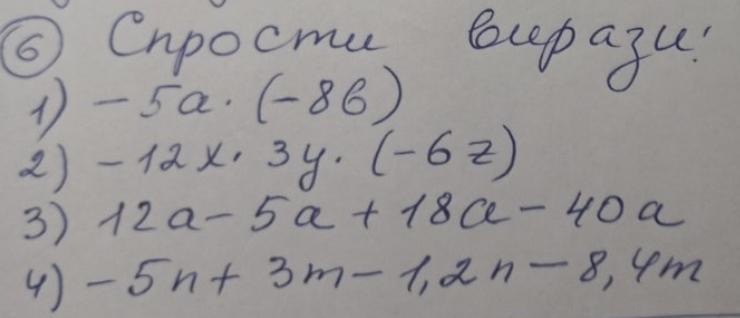 6 Спрости вирази:
1) -5a · (-8b)
2) -12x · 3y · (-6z)
3) 12a - 5a + 18a - 40a
4) -5n + 3m - 1,2n - 8,4m